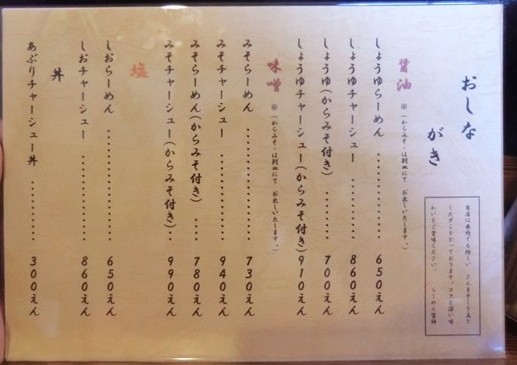 おしな
がき
醤油
※(からみそ・は別皿にて お出しいたします。)
しょうゆらーめん ............ 650えん
しょうゆチャーシュー ......... 860えん
しょうゆ(からみそ付き) ...... 700えん
しょうゆチャーシュー(からみそ付き)910えん
味噌
※(からみそ・は別皿にて お出しいたします。)
みそらーめん ............ 730えん
みそチャーシュー ......... 940えん
みそらーめん(からみそ付き) .. 780えん
みそチャーシュー(からみそ付き).. 990えん
塩
しおらーめん ............ 650えん
しおチャーシュー ......... 860えん
丼
あぶりチャーシュー丼 ......... 300えん